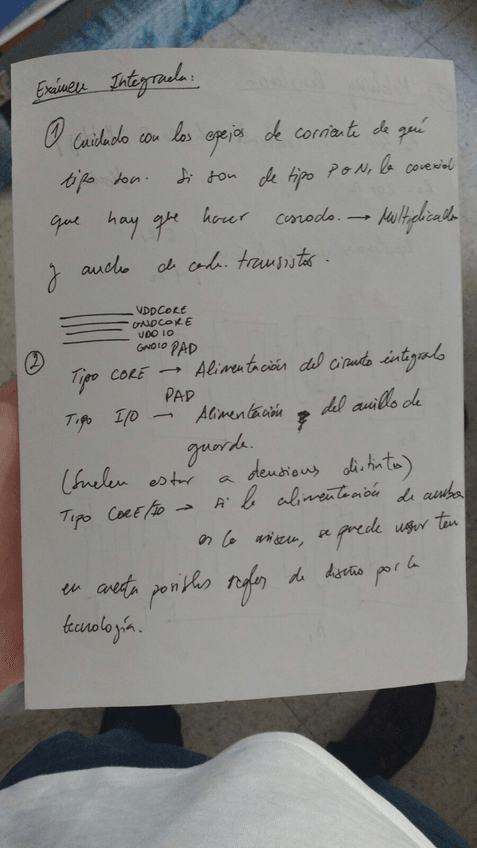 Exámen Integrada:
① Cuidado con los espejos de corriente de qué
tipo son. Si son de tipo P o N, la conexión
que hay que hacer cascodo. → Multiplicador
y ancho de cada transistor.
VDDCORE
GNDCORE
VDDIO
GNDIO
②
Tipo CORE → Alimentación del circuito integrado
PAD
Tipo I/O → Alimentación del anillo de
PAD
guarda.
(Suelen estar a tensiones distintas)
Tipo CORE/IO → Si la alimentación de ambos
es la misma, se puede usar ten
en cuenta posibles reglas de diseño por la
tecnología.